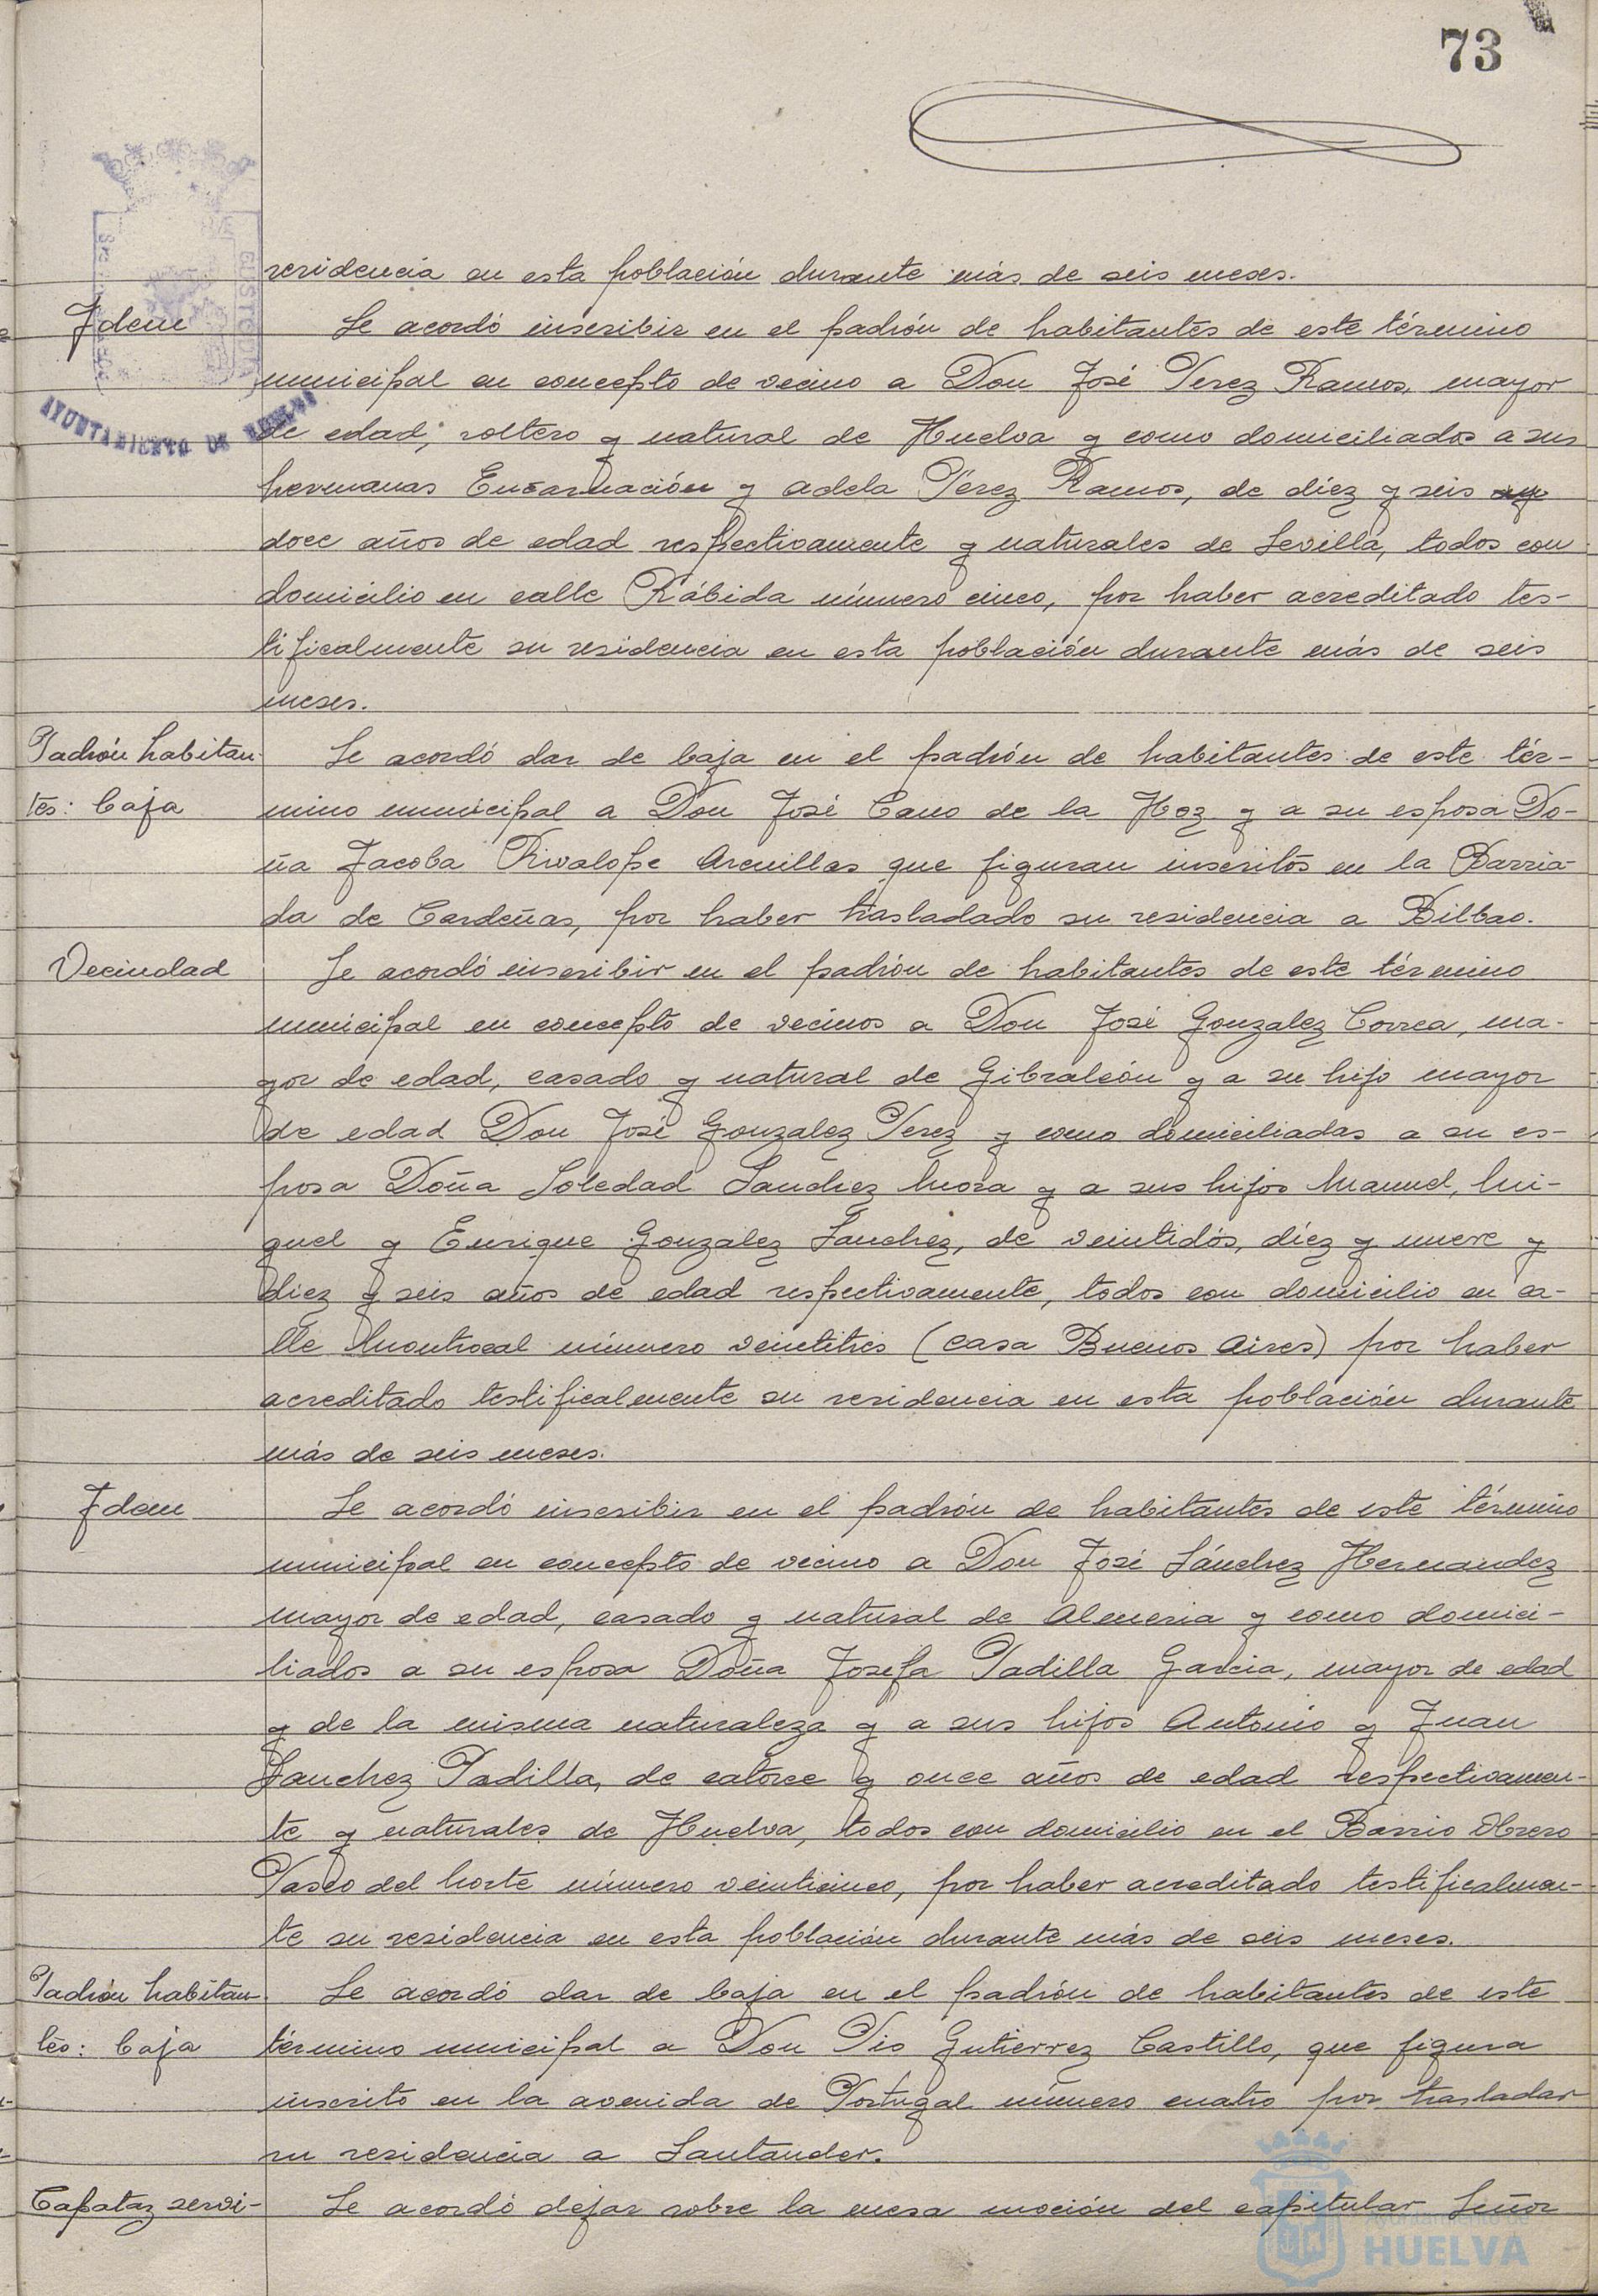 73
residencia en esta población durante más de seis meses.
Idem
Se acordó inscribir en el padrón de habitantes de este término
municipal en concepto de vecino a Don José Perez Ramos, mayor
AYUNTAMIENTO DE HUELVA
de edad, soltero y natural de Huelva y como domiciliados a sus
hermanas Encarnación y Adela Pérez Ramos, de diez y seis y
doce años de edad respectivamente y naturales de Sevilla, todos con
domicilio en calle Rábida número cinco, por haber acreditado tes-
tificalmente su residencia en esta población durante más de seis
meses.
Padrón habitan-
tes: baja
Se acordó dar de baja en el padrón de habitantes de este tér-
mino municipal a Don José Cano de la Hoz y a su esposa Do-
ña Jacoba Rivalope Arcuillas que figuran inscritos en la Barria-
da de Cardeñas, por haber trasladado su residencia a Bilbao.
Vecindad
Se acordó inscribir en el padrón de habitantes de este término
municipal en concepto de vecinos a Don José Gonzalez Correa, ma-
yor de edad, casado y natural de Gibraleón y a su hijo mayor
de edad Don José Gonzalez Perez y como domiciliadas a su es-
posa Doña Soledad Sanchez Mora y a sus hijos Manuel, Mi-
guel y Enrique Gonzalez Sanchez, de veintidós, diez y nueve y
diez y seis años de edad respectivamente, todos con domicilio en ca-
lle Montrocal número veintitres (casa Buenos Aires) por haber
acreditado testificalmente su residencia en esta población durante
más de seis meses.
Idem
Se acordó inscribir en el padrón de habitantes de este término
municipal en concepto de vecino a Don José Sánchez Hernandez
mayor de edad, casado y natural de Almeria y como domici-
liados a su esposa Doña Josefa Padilla Garcia, mayor de edad
y de la misma naturaleza y a sus hijos Antonio y Juan
Sanchez Padilla, de catorce y once años de edad respectivamen-
te y naturales de Huelva, todos con domicilio en el Barrio Obrero
Paseo del Norte número veinticinco, por haber acreditado testificalmen-
te su residencia en esta población durante más de seis meses.
Padrón habitan-
tes: baja
Se acordó dar de baja en el padrón de habitantes de este
término municipal a Don Pio Gutierrez Castillo, que figura
inscrito en la avenida de Portugal número cuatro por trasladar
su residencia a Santander.
Capataz servi-
Se acordó dejar sobre la mesa moción del capitular Señor
HUELVA